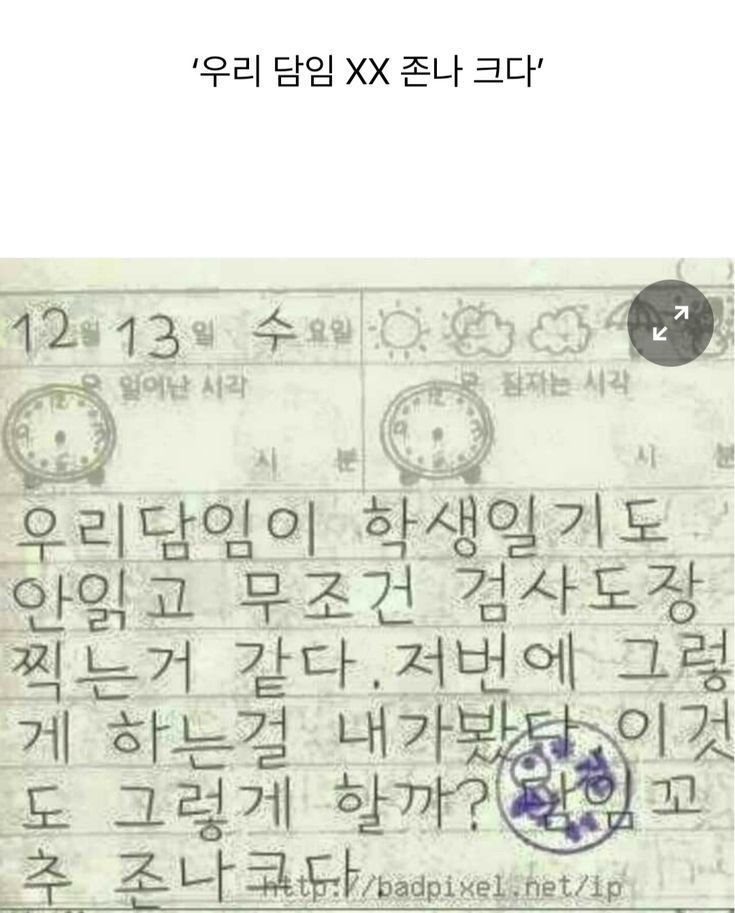 ‘우리 담임 XX 존나 크다’
12월 13일 수요일
일어난 시각 잠자는 시각
시 분 시 분
우리담임이 학생일기도
안읽고 무조건 검사도장
찍는거 같다. 저번에 그렇
게 하는걸 내가봤다 이것
도 그렇게 할까? 담임 꼬
추 존나크다.
http://badpixel.net/ip